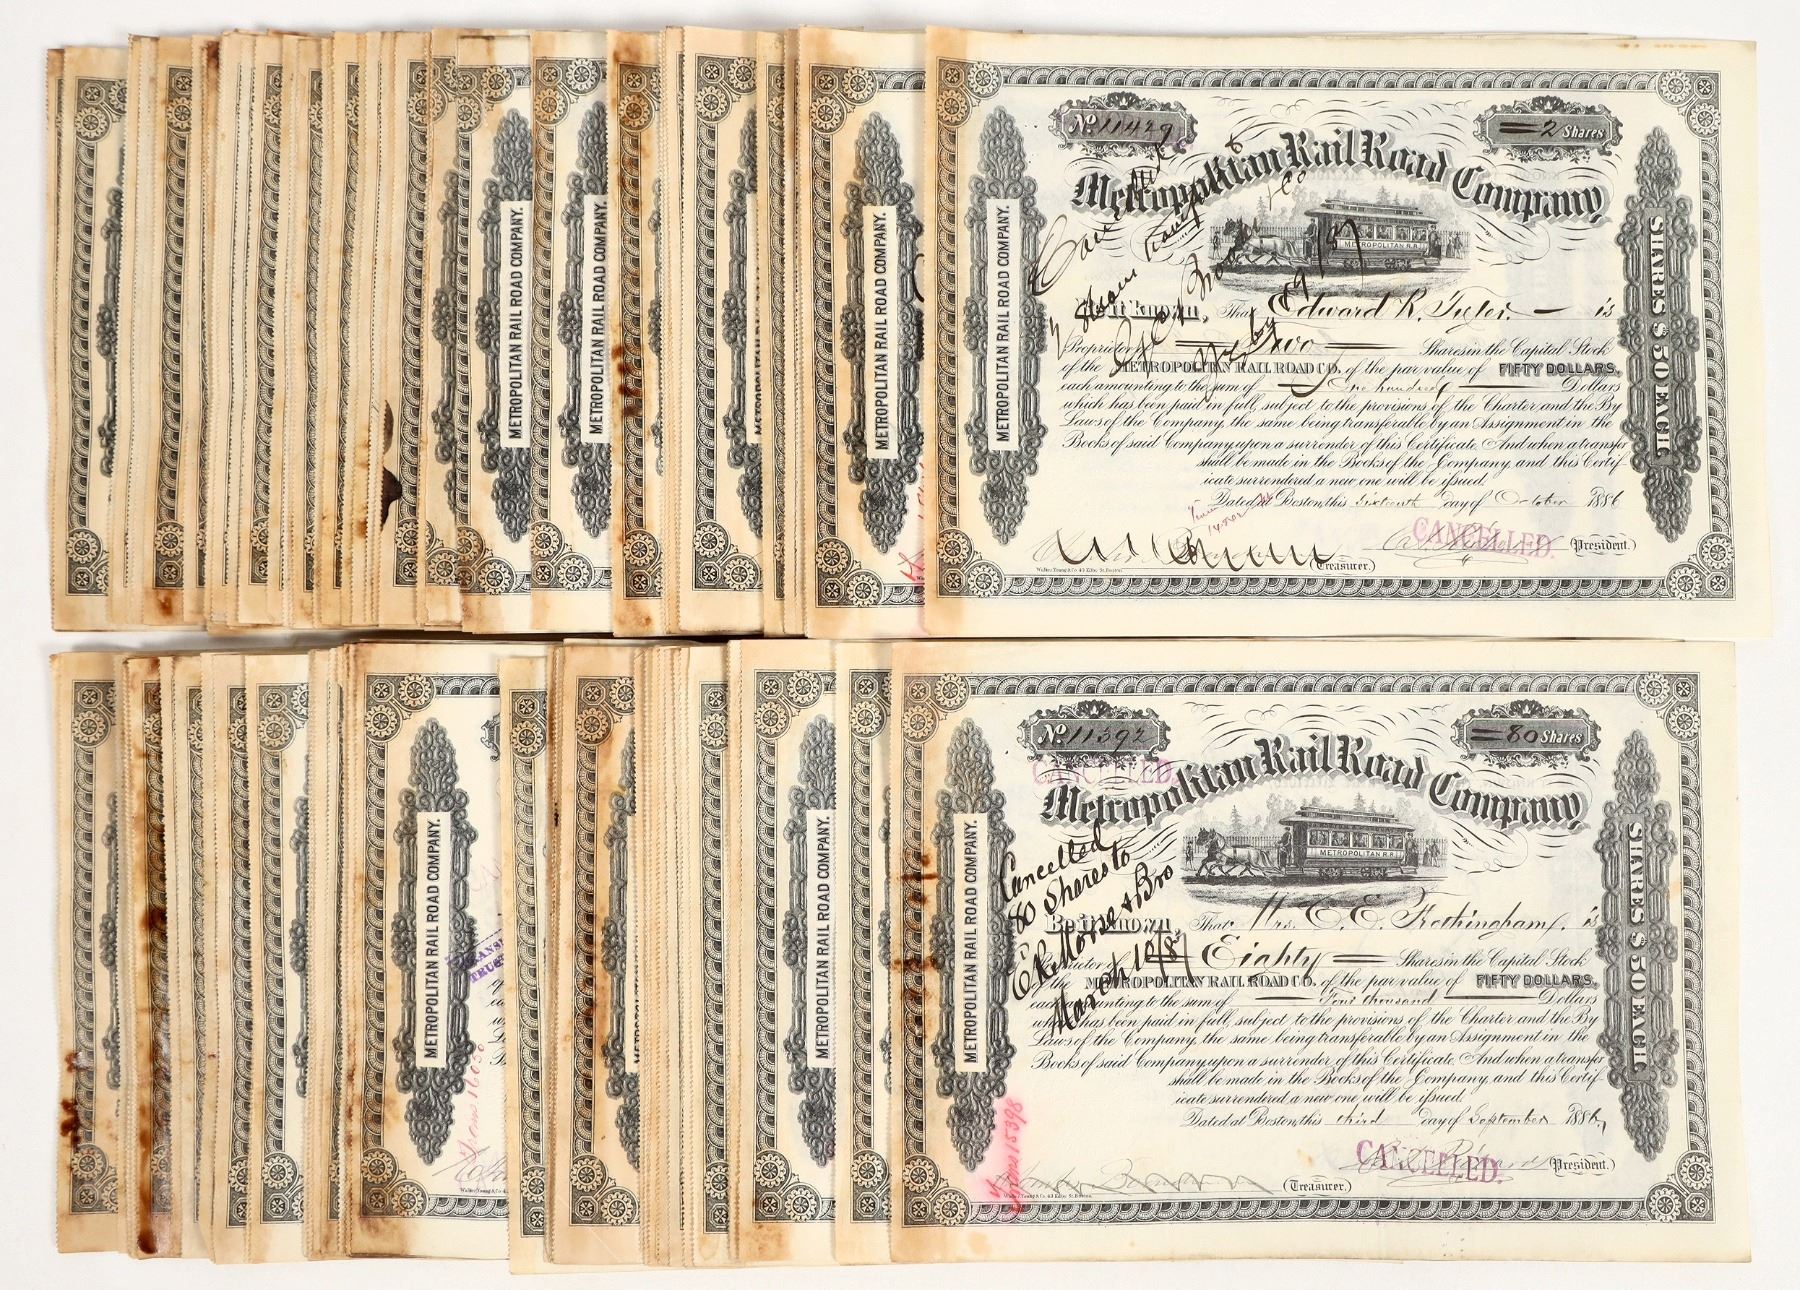 METROPOLITAN RAIL ROAD COMPANY.
METROPOLITAN RAIL ROAD COMPANY.
METROPOLITAN RAIL ROAD COMPANY.
METROPOLITAN RAIL ROAD COMPANY.
No. 11429
= 2 Shares
Metropolitan Rail Road Company
METROPOLITAN R.R.
SHARES $50 EACH
Be it known, That Edward R. Tyler. — is
Proprietor of — Two — Shares in the Capital Stock
of the METROPOLITAN RAIL ROAD CO. of the par value of FIFTY DOLLARS,
each amounting to the sum of — One hundred — Dollars
which has been paid in full, subject to the provisions of the Charter and the By
Laws of the Company, the same being transferable by an Assignment in the
Books of said Company upon a surrender of this Certificate. And when a transfer
shall be made in the Books of the Company, and this Certif-
icate surrendered a new one will be issued.
Dated at Boston, this sixteenth day of October 1886
CANCELLED.
(President.)
(Treasurer.)
Walker, Young & Co. 43 Kilby St. Boston.
METROPOLITAN RAIL ROAD COMPANY.
Trans 16030
Walker, Young & Co. 43 Kilby St. Boston
METROPOLITAN RAIL ROAD COMPANY.
METROPOLITAN RAIL ROAD COMPANY.
No. 11392
= 80 Shares
CANCELLED.
Metropolitan Rail Road Company
METROPOLITAN R.R.
SHARES $50 EACH
Cancelled
80 Shares to
E R Morse & Bro
March 10/87
Be it known That Mrs. C. E. Frothingham, is
Proprietor of Eighty — Shares in the Capital Stock
of the METROPOLITAN RAIL ROAD CO. of the par value of FIFTY DOLLARS,
each amounting to the sum of — Four thousand — Dollars
which has been paid in full, subject to the provisions of the Charter and the By
Laws of the Company, the same being transferable by an Assignment in the
Books of said Company upon a surrender of this Certificate. And when a transfer
shall be made in the Books of the Company, and this Certif-
icate surrendered a new one will be issued.
Dated at Boston, this third day of September 1886,
Trans 15398
CANCELLED.
(President.)
(Treasurer.)
Walker, Young & Co. 43 Kilby St. Boston.